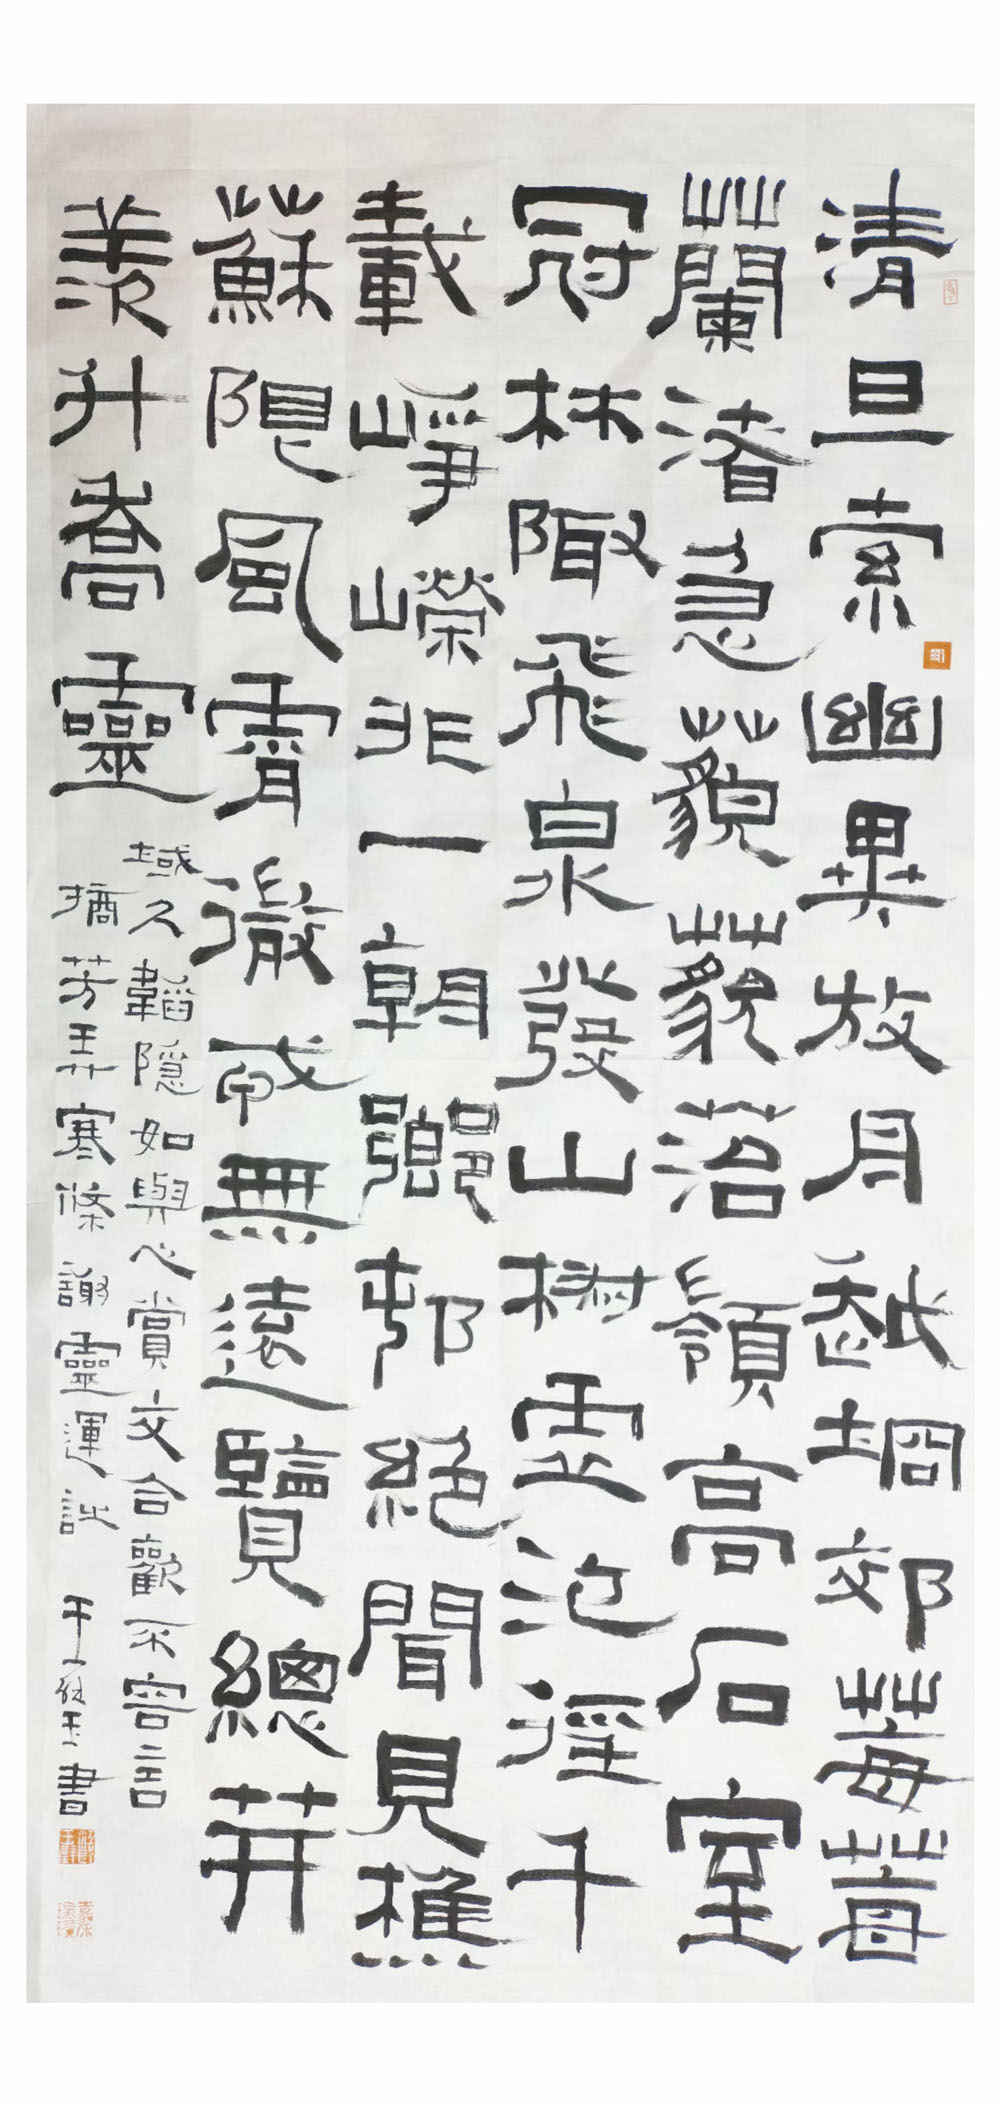 清旦索幽異放舟越坰郊莓莓
蘭渚急藐藐菭嶺高石室
冠林陬飛泉發山樹虛泛徑千
載崢嶸非一朝鄉邨絕聞見樵
蘇限風霄微戎無遠覽總笄
羨升喬靈
域久韜隱如與心賞交合歡不容言
摘芳弄寒條謝靈運詩 玉書